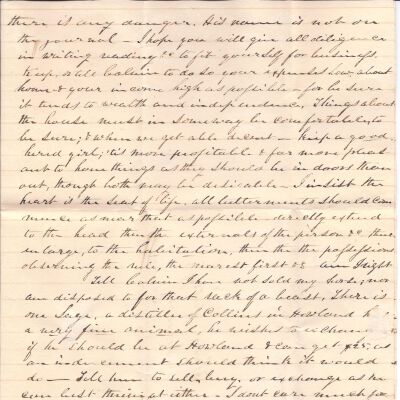 there is any danger. His name is not on
the journal – I hope you will give all diligence
in writing reading &c to fit yourself for business.
Keep, or tell Calvin to do so your expenses low about
home & your income high as possible – for be sure
it tends to wealth and independence. Things about
the house must in some way be comfortable, to
be sure; & when we get able to – keep a good
hired girl; 'tis more profitable & far more pleas
ant to have things as they should be in doors than
out, though both may be desirable – I insist the
heart is the seat of life, all betterments should com
mence as near that as possible – directly extend
to the head then the externals of the person &c then
enlarge, to the habitation, then the possessions
observing the rule, the nearest first &c am I right
Tell Calvin I have not sold my horse; nor
am disposed to for that sack of a beast. There is
one Sage, a distiller of Collins in Howland h
a very fine animal, he wishes to exchange
if he should be at Howland & can get $25, as
an inducement should think it would
do – Tell him to sell, buy, or exchange as he
can best thrive at either – I dont care much for